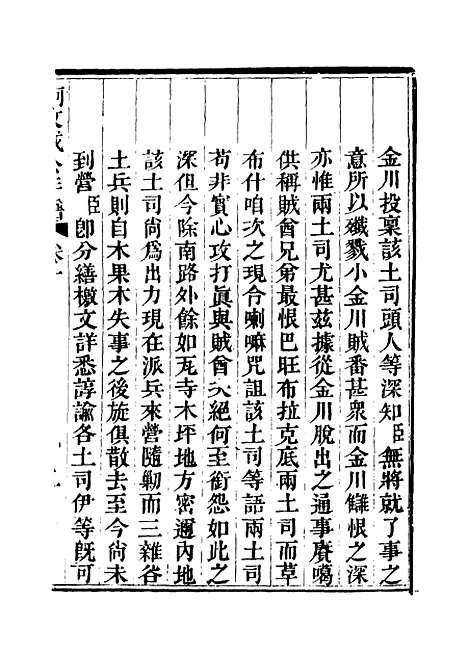 金川投稟該土司頭人等深知臣無將就了事之
意所以殲戮小金川賊番甚衆而金川讎恨之深
亦惟兩土司尤甚茲據從金川脫出之通事賡噶
供稱賊酋兄弟最恨巴旺布拉克底兩土司而草
布什咱次之現合喇嘛咒詛該土司等語兩土司
苟非實心攻打眞與賊酋大絕何至銜怨如此之
深但今除南路外餘如瓦寺木坪地方密邇內地
該土司尚爲出力現在派兵來營隨勦而三雜谷
土兵則自木果木失事之後旋俱散去至今尚未
到營臣卽分繕檄文詳悉諄諭各土司伊等旣可
阿文成公年譜 卷十